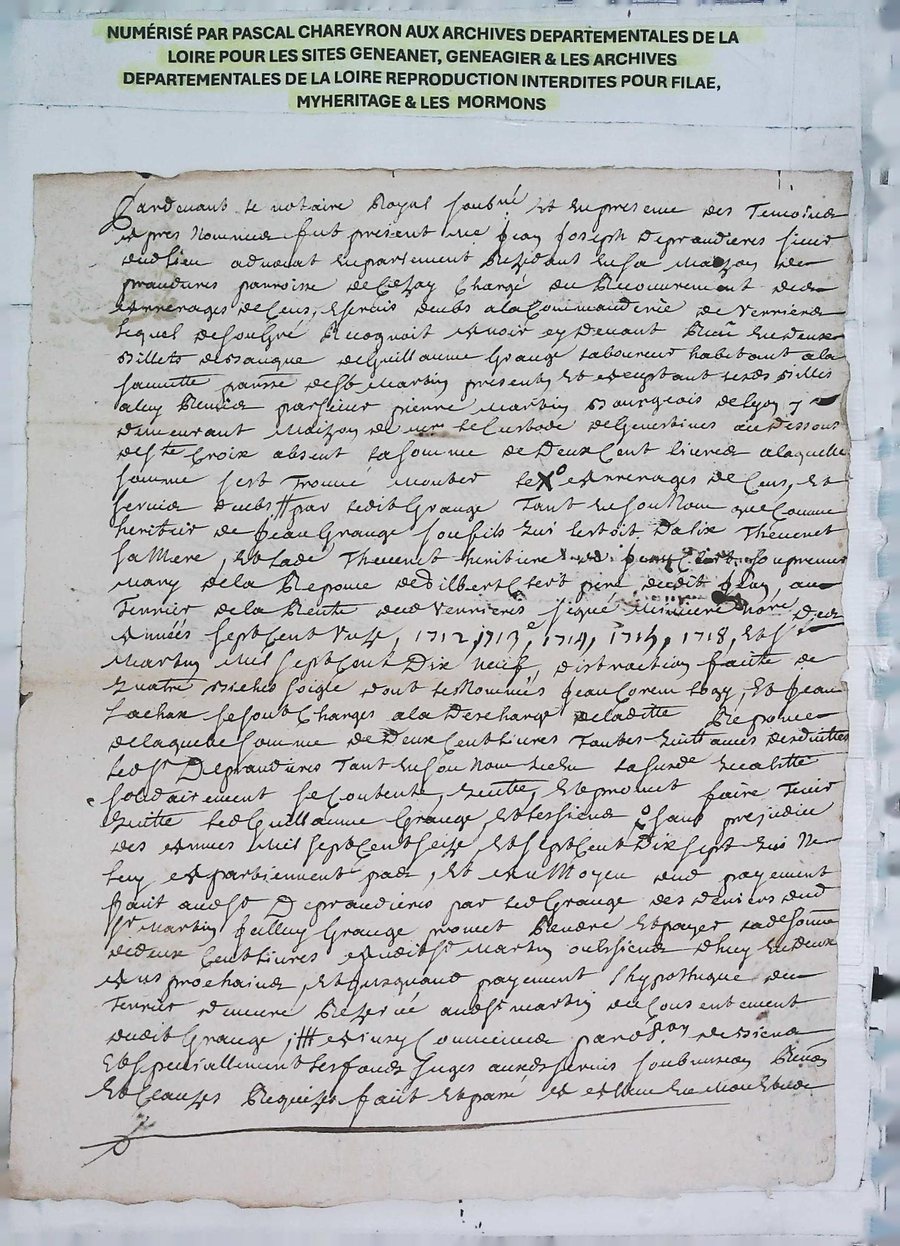 NUMÉRISÉ PAR PASCAL CHAREYRON AUX ARCHIVES DEPARTEMENTALES DE LA
LOIRE POUR LES SITES GENEANET, GENEAGIER & LES ARCHIVES
DEPARTEMENTALES DE LA LOIRE REPRODUCTION INTERDITES POUR FILAE,
MYHERITAGE & LES MORMONS
Pardevant le notaire Royal soubné et en presence des Temoins
apres Nommes fut present Me Jean Joseph Depraudieres sieur
dud lieu advocat en parlement Rezidant en sa Maizon de
praudieres parroisse de Cezay Chargé du Recouvrement des
arrerages de Cens, & servis deubs a la Commanderie de Verrieres
lequel de son gré Recognoit avoir cy devant Receu en deux
Billets de Banque de Guillaume Grange laboureur habitant a la
parsse de St Martin present, et acceptant lesds Billets
a luy Remis par sieur pierre Martin Bourgeois de Lyon y
demeurant Maizon de le Custode de Genetines au Dessous
de Ste Croix absent la somme de Deux Cent livres a laquelle
somme s'est Trouvé Monter les arrerages de Cens, et
servis deubs par ledit Grange Tant en son Nom que Comme
heritier de Jean Grange son fils qui l'estoit Dalix Thevenet
sa Mere, et lade Thevenet heritiere de son premier
Mary de la Reponce de Gilbert pere dudit Jean au
Terrier de la Rente dud Verrieres signé notre des
années sept Cent Unze, 1712, 1713, 1714, 1715, 1718, et St
Martin Mil sept Cent Dix Neuf, distraction faitte de
quatre Bichets soigle dont les Nommés Jean et Jean
Lachax se sont Charges a la Descharge de laditte Reponce
de laquelle somme de Deux Cent livres Toutes quittances desduittes
led Sr Depraudieres Tant en son Nom qu'en sa susde qualitté
solidairement se Contente, quitte, et promet faire Tenir
quitte led Guillaume Grange, et les siens sans prejudice
des années Mil sept Cent seize, et sept Cent Dix sept qui Ne
luy appartiennent pas, et au Moyen dud payement
fait aud Sr Depraudieres par led Grange des deniers dud
Sr Martin Jcelluy Grange promet Rendre et payer lade somme
de deux Cent livres audit Sr Martin ou les siens d'huy en deux
ans prochains, et jusquaud payement l'hypotheque du
Terrier demeure Rezervé aud Sr Martin du Consentement
dudit Grange, par
et specialement les fonds sujets auxds servis
et Clauzes Requizes fait et passé